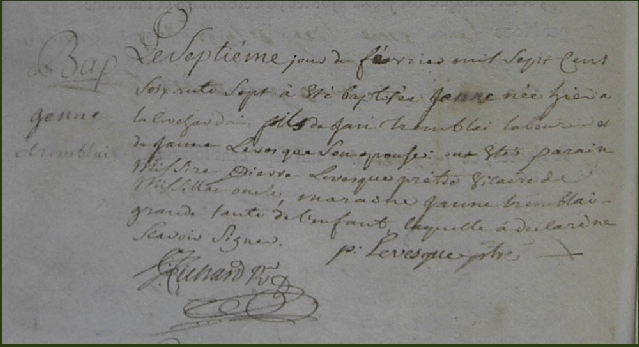 Bap
genne
tremblai
Le Septiéme jour de février mil Sept Cent
Soixante Sept à été baptisée genne née hier a
fils de jan tremblai laboureur et
de janne Levesque Son epouse: ont étés parain
Missire Pierre Levesque prêtre vicaire de
Missillac oncle, maraine janne tremblai
grande tante de l'enfant, laquelle à declaré ne
Scavoir Signer.
p: Levesque ptre